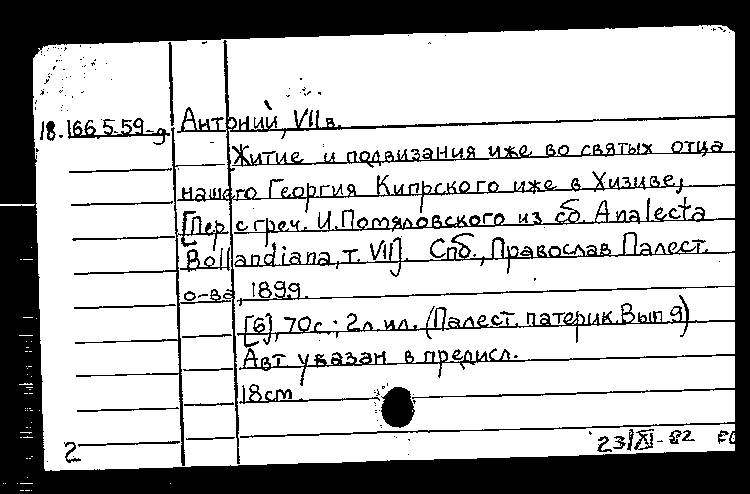 18.166.5.59-д Антоний, VII в.
Житие и подвизания иже во святых отца
нашего Георгия Кипрского иже в Хизиве,
[Пер с греч. И. Помяловского из сб. Analecta
Bollandiana, т. VII]. Спб., Православ Палест.
о-ва, 1899.
[6], 70 с.; 2 л. ил. (Палест. патерик. Вып 9)
Авт указан в предисл.
18cm.
2 23/XI-82